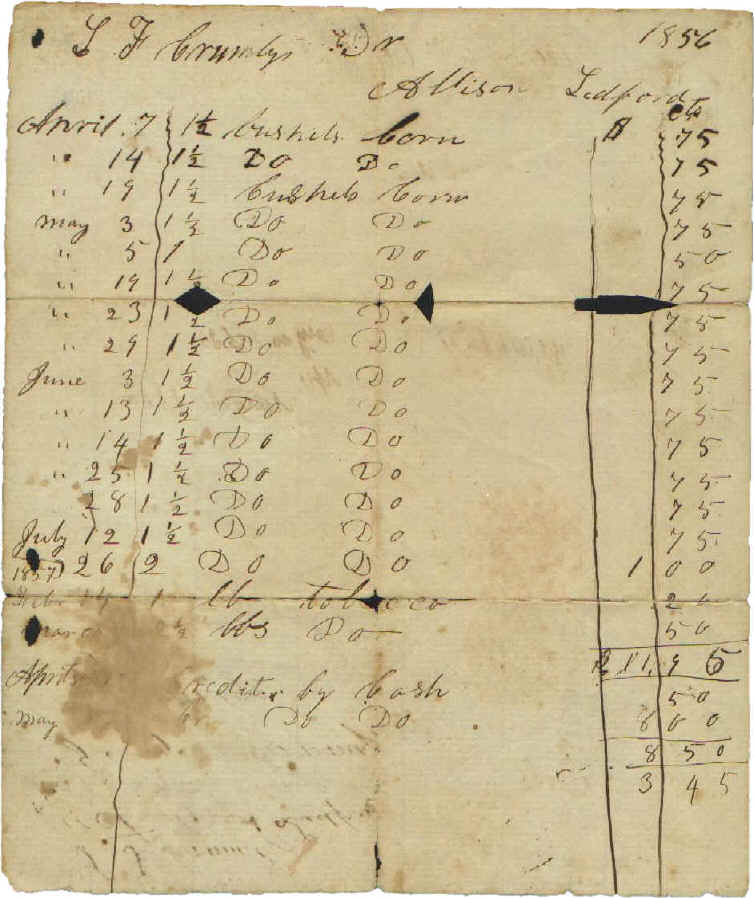 L F Crumbys Dr 1856
Allison Ledford
$ cts
Aprril 7 1½ bushels Corn 75
" 14 1½ Do Do 75
" 19 1½ bushels Corn 75
may 3 1½ Do Do 75
" 5 1 Do Do 50
" 19 1½ Do Do 75
" 23 1½ Do Do 75
" 29 1½ Do Do 75
June 3 1½ Do Do 75
" 13 1½ Do Do 75
" 14 1½ Do Do 75
" 25 1½ Do Do 75
" 28 1½ Do Do 75
July 12 1½ Do Do 75
26 2 Do Do 1 00
1857
14 1 lb tobacco 20
½ lbs Do 50
$ 11,95
April Credit by Cash 50
may Do Do 8 00
8 50
3 45